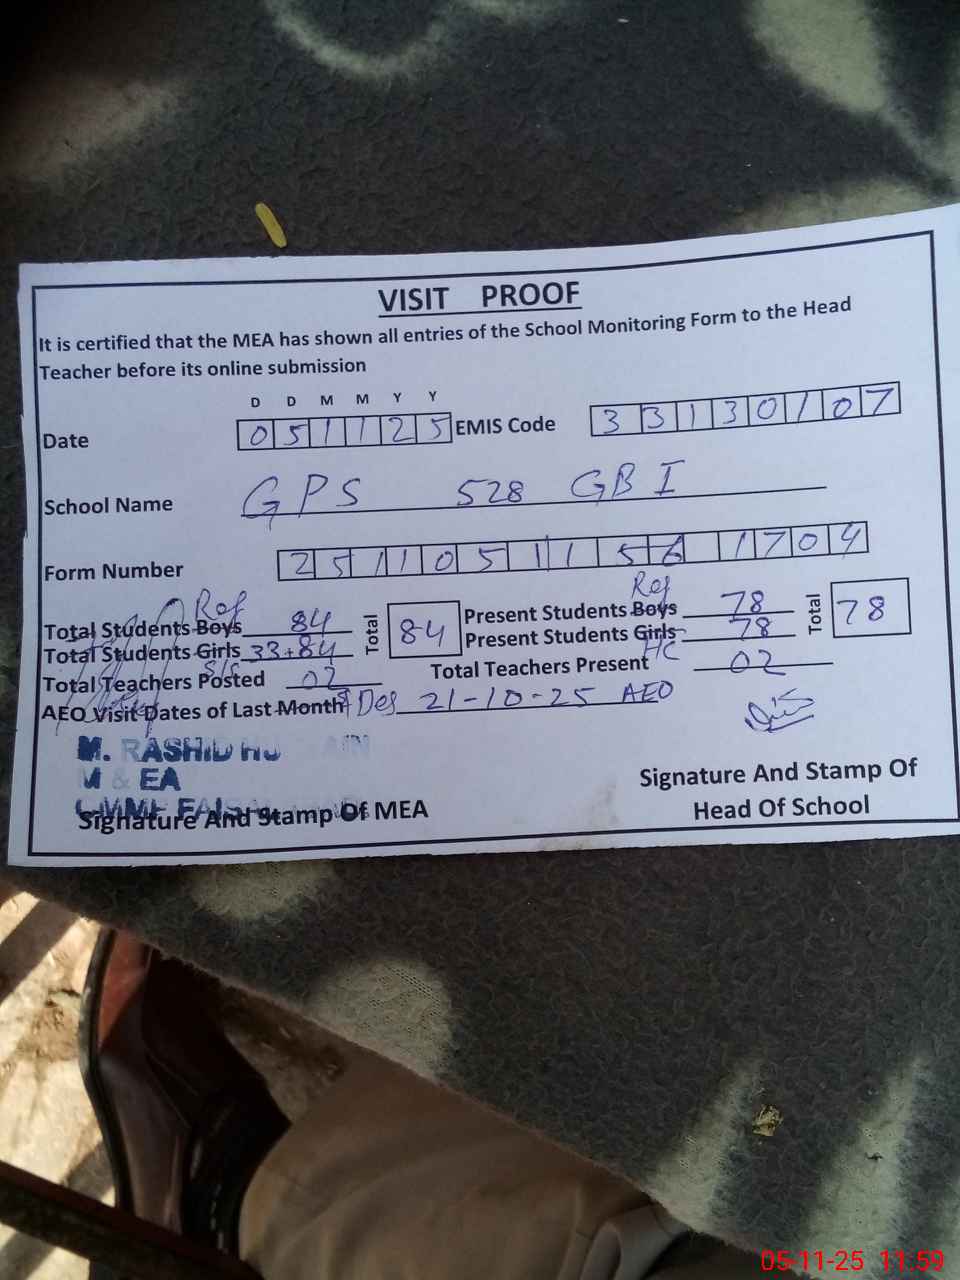 VISIT PROOF
It is certified that the MEA has shown all entries of the School Monitoring Form to the Head
Teacher before its online submission
D D M M Y Y
Date 051125 EMIS Code 33130107
School Name GPS 528 GB I
Form Number 2511051156 1704
Ref Ref
Total Students Boys 84 Total 84 Present Students Boys 78 Total 78
Total Students Girls 33+84 Present Students Girls 78
S/C HC
Total Teachers Posted 02 Total Teachers Present 02
AEO Visit Dates of Last Month Des 21-10-25 AEO
M. RASHID HUSSAIN
M & EA
CMMF FAISALABAD
Signature And Stamp Of MEA
Signature And Stamp Of
Head Of School
05-11-25 11:59